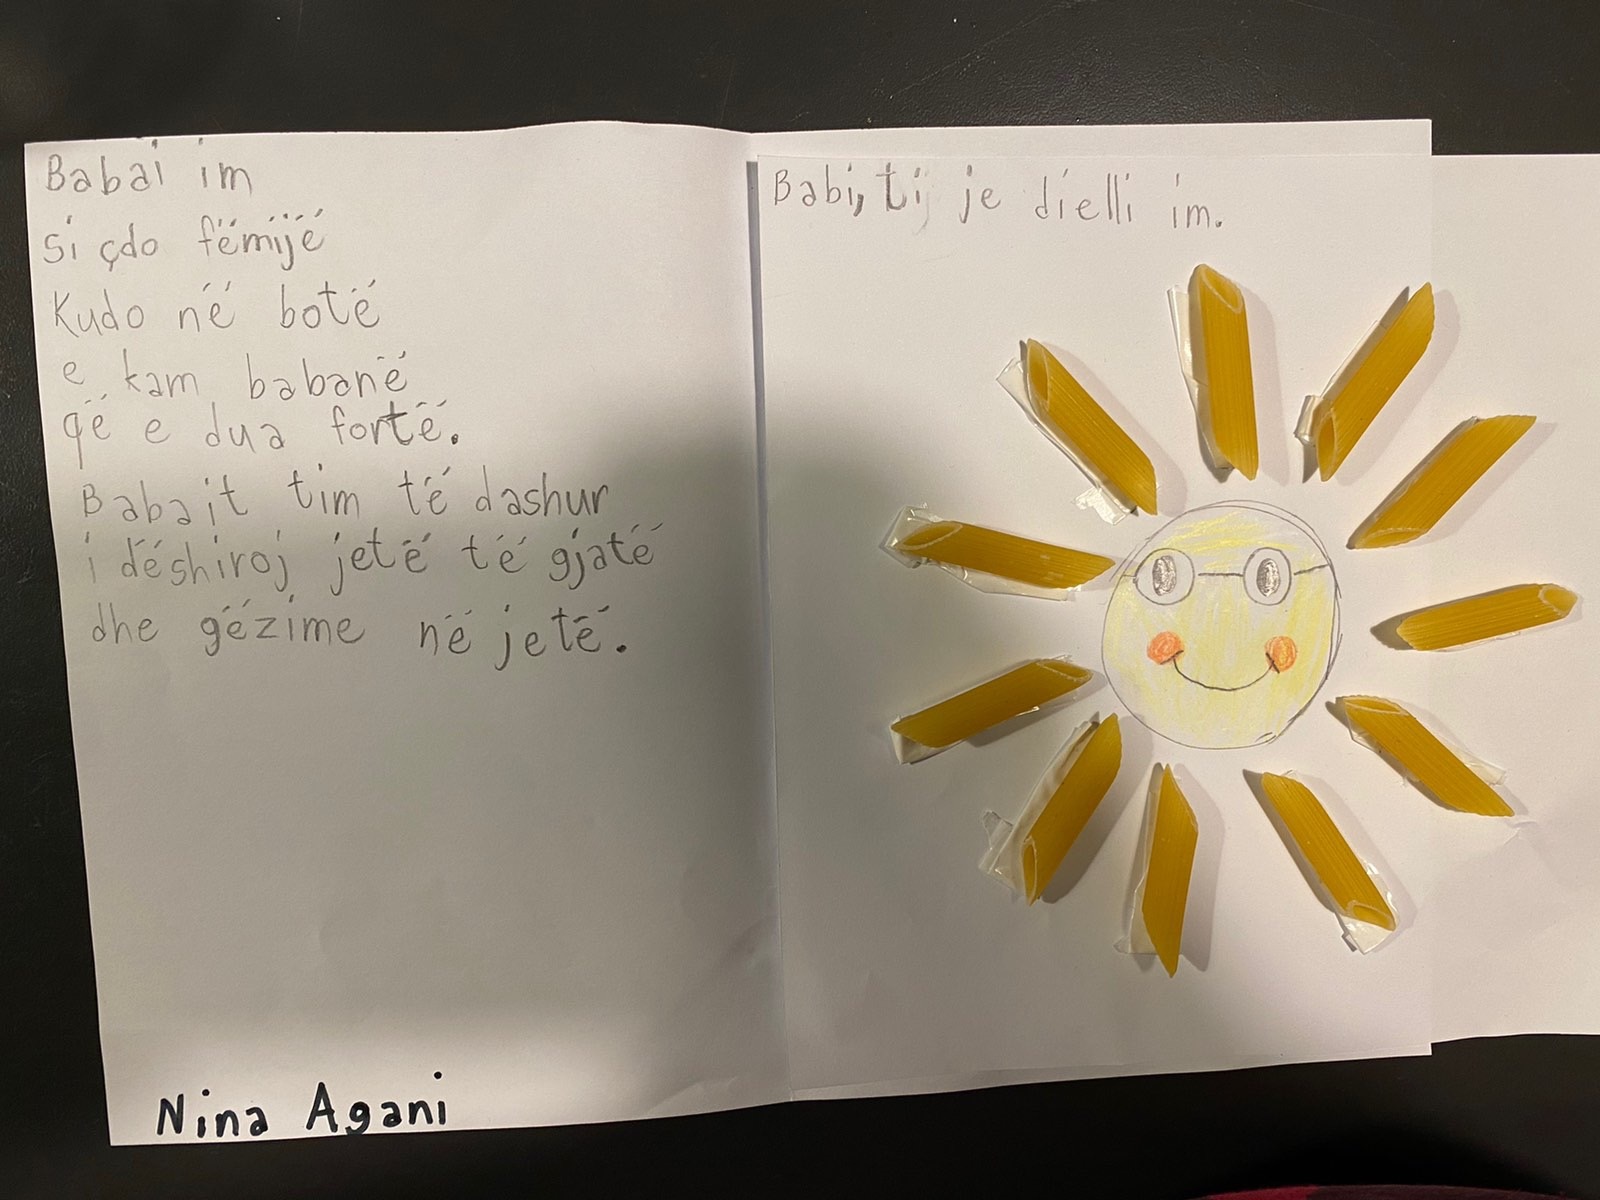 Babai im
si çdo fëmijë
Kudo në botë
e kam babanë
që e dua fortë.
Babait tim të dashur
i dëshiroj jetë të gjatë
dhe gëzime në jetë.
Nina Agani
Babi, ti je dielli im.